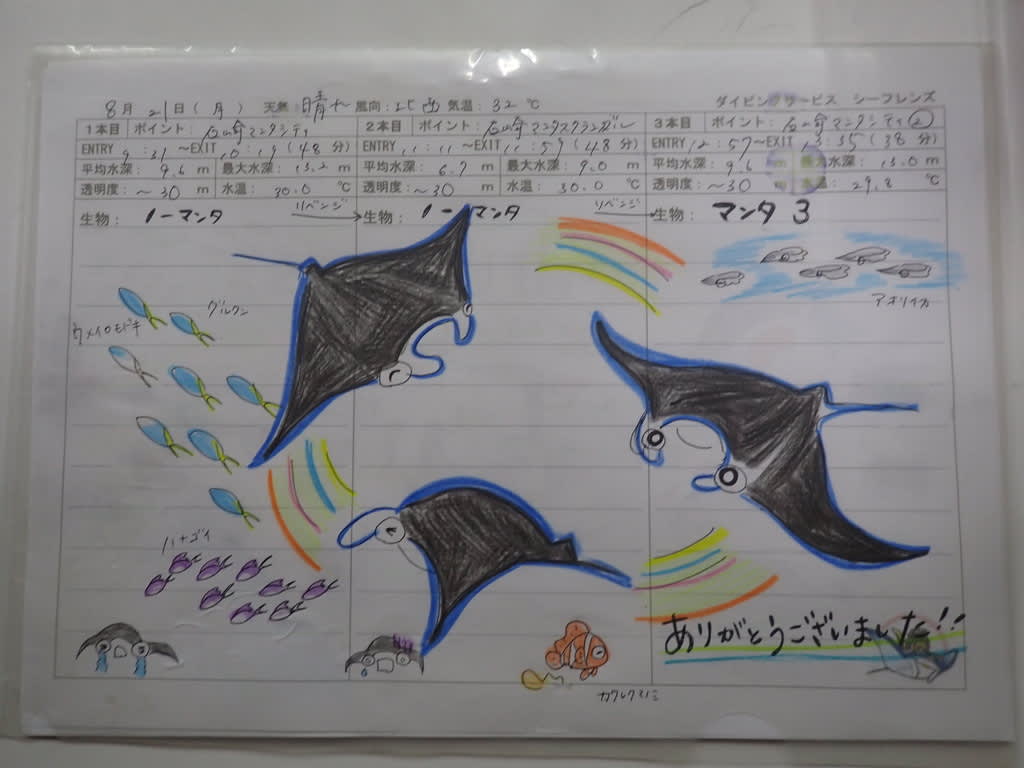 8月21日(月) 天気:晴れ 風向:北西 気温:32℃
ダイビングサービス シーフレンズ
1本目 ポイント:石崎マンタシティ
ENTRY 9:31～EXIT 10:19(48分)
平均水深:9.6m 最大水深:13.2m
透明度:～30m 水温:30.0℃
生物:ノーマンタ
リベンジ
2本目 ポイント:石崎マンタスクランブル
ENTRY 11:11～EXIT 11:59(48分)
平均水深:6.7m 最大水深:9.0m
透明度:～30m 水温:30.0℃
生物:ノーマンタ
リベンジ
3本目 ポイント:石崎マンタシティ②
ENTRY 12:57～EXIT 13:35(38分)
平均水深:9.6m 最大水深:13.0m
透明度:～30m 水温:29.8℃
生物:マンタ 3
アオリイカ
グルクン
ウメイロモドキ
ハナゴイ
カクレクマノミ
ありがとうございました!!